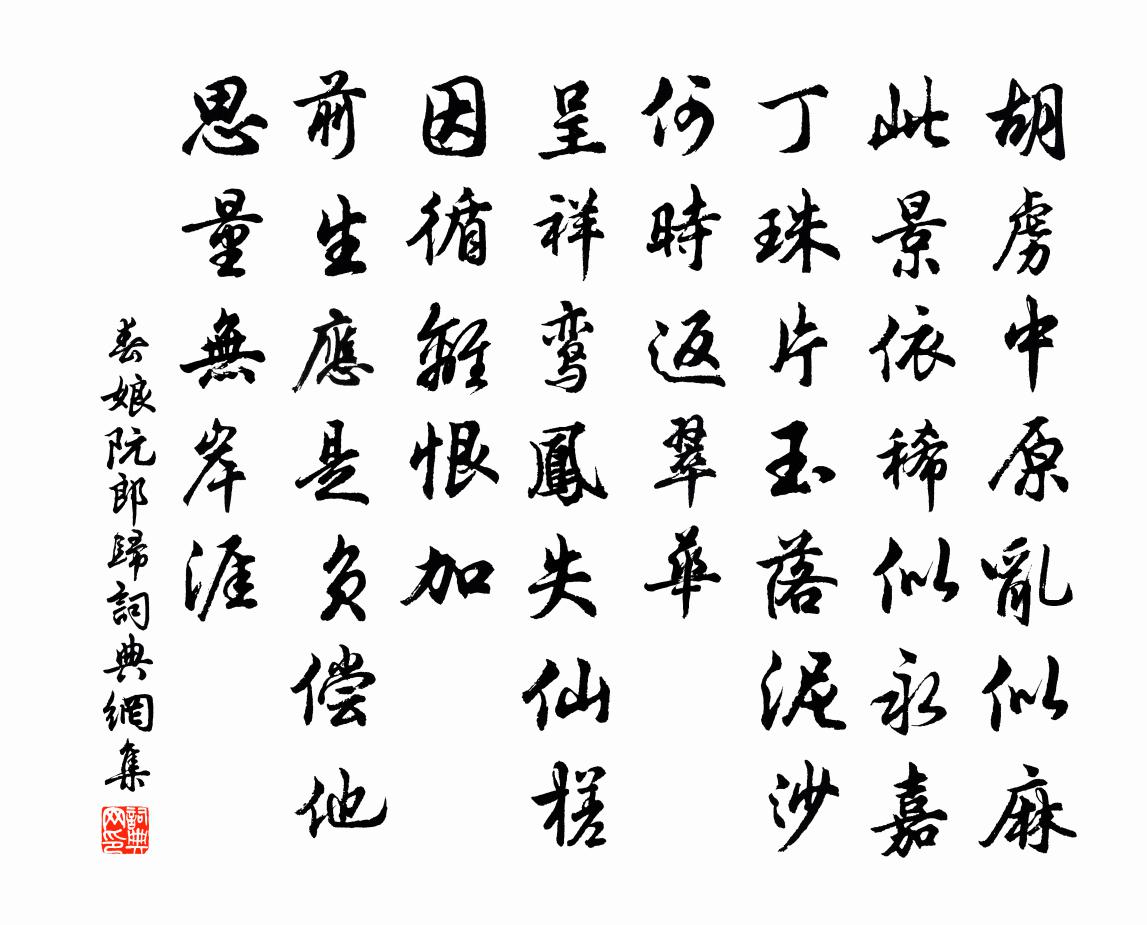 胡虜中原亂似麻
此景依稀似永嘉
丁珠片玉落泥沙
何時返翠華
呈祥鸾鳳失仙槎
因循離恨加
前生應是負偿他
思量無岸涯
春娘阮郎歸詞典網集
詞典网印